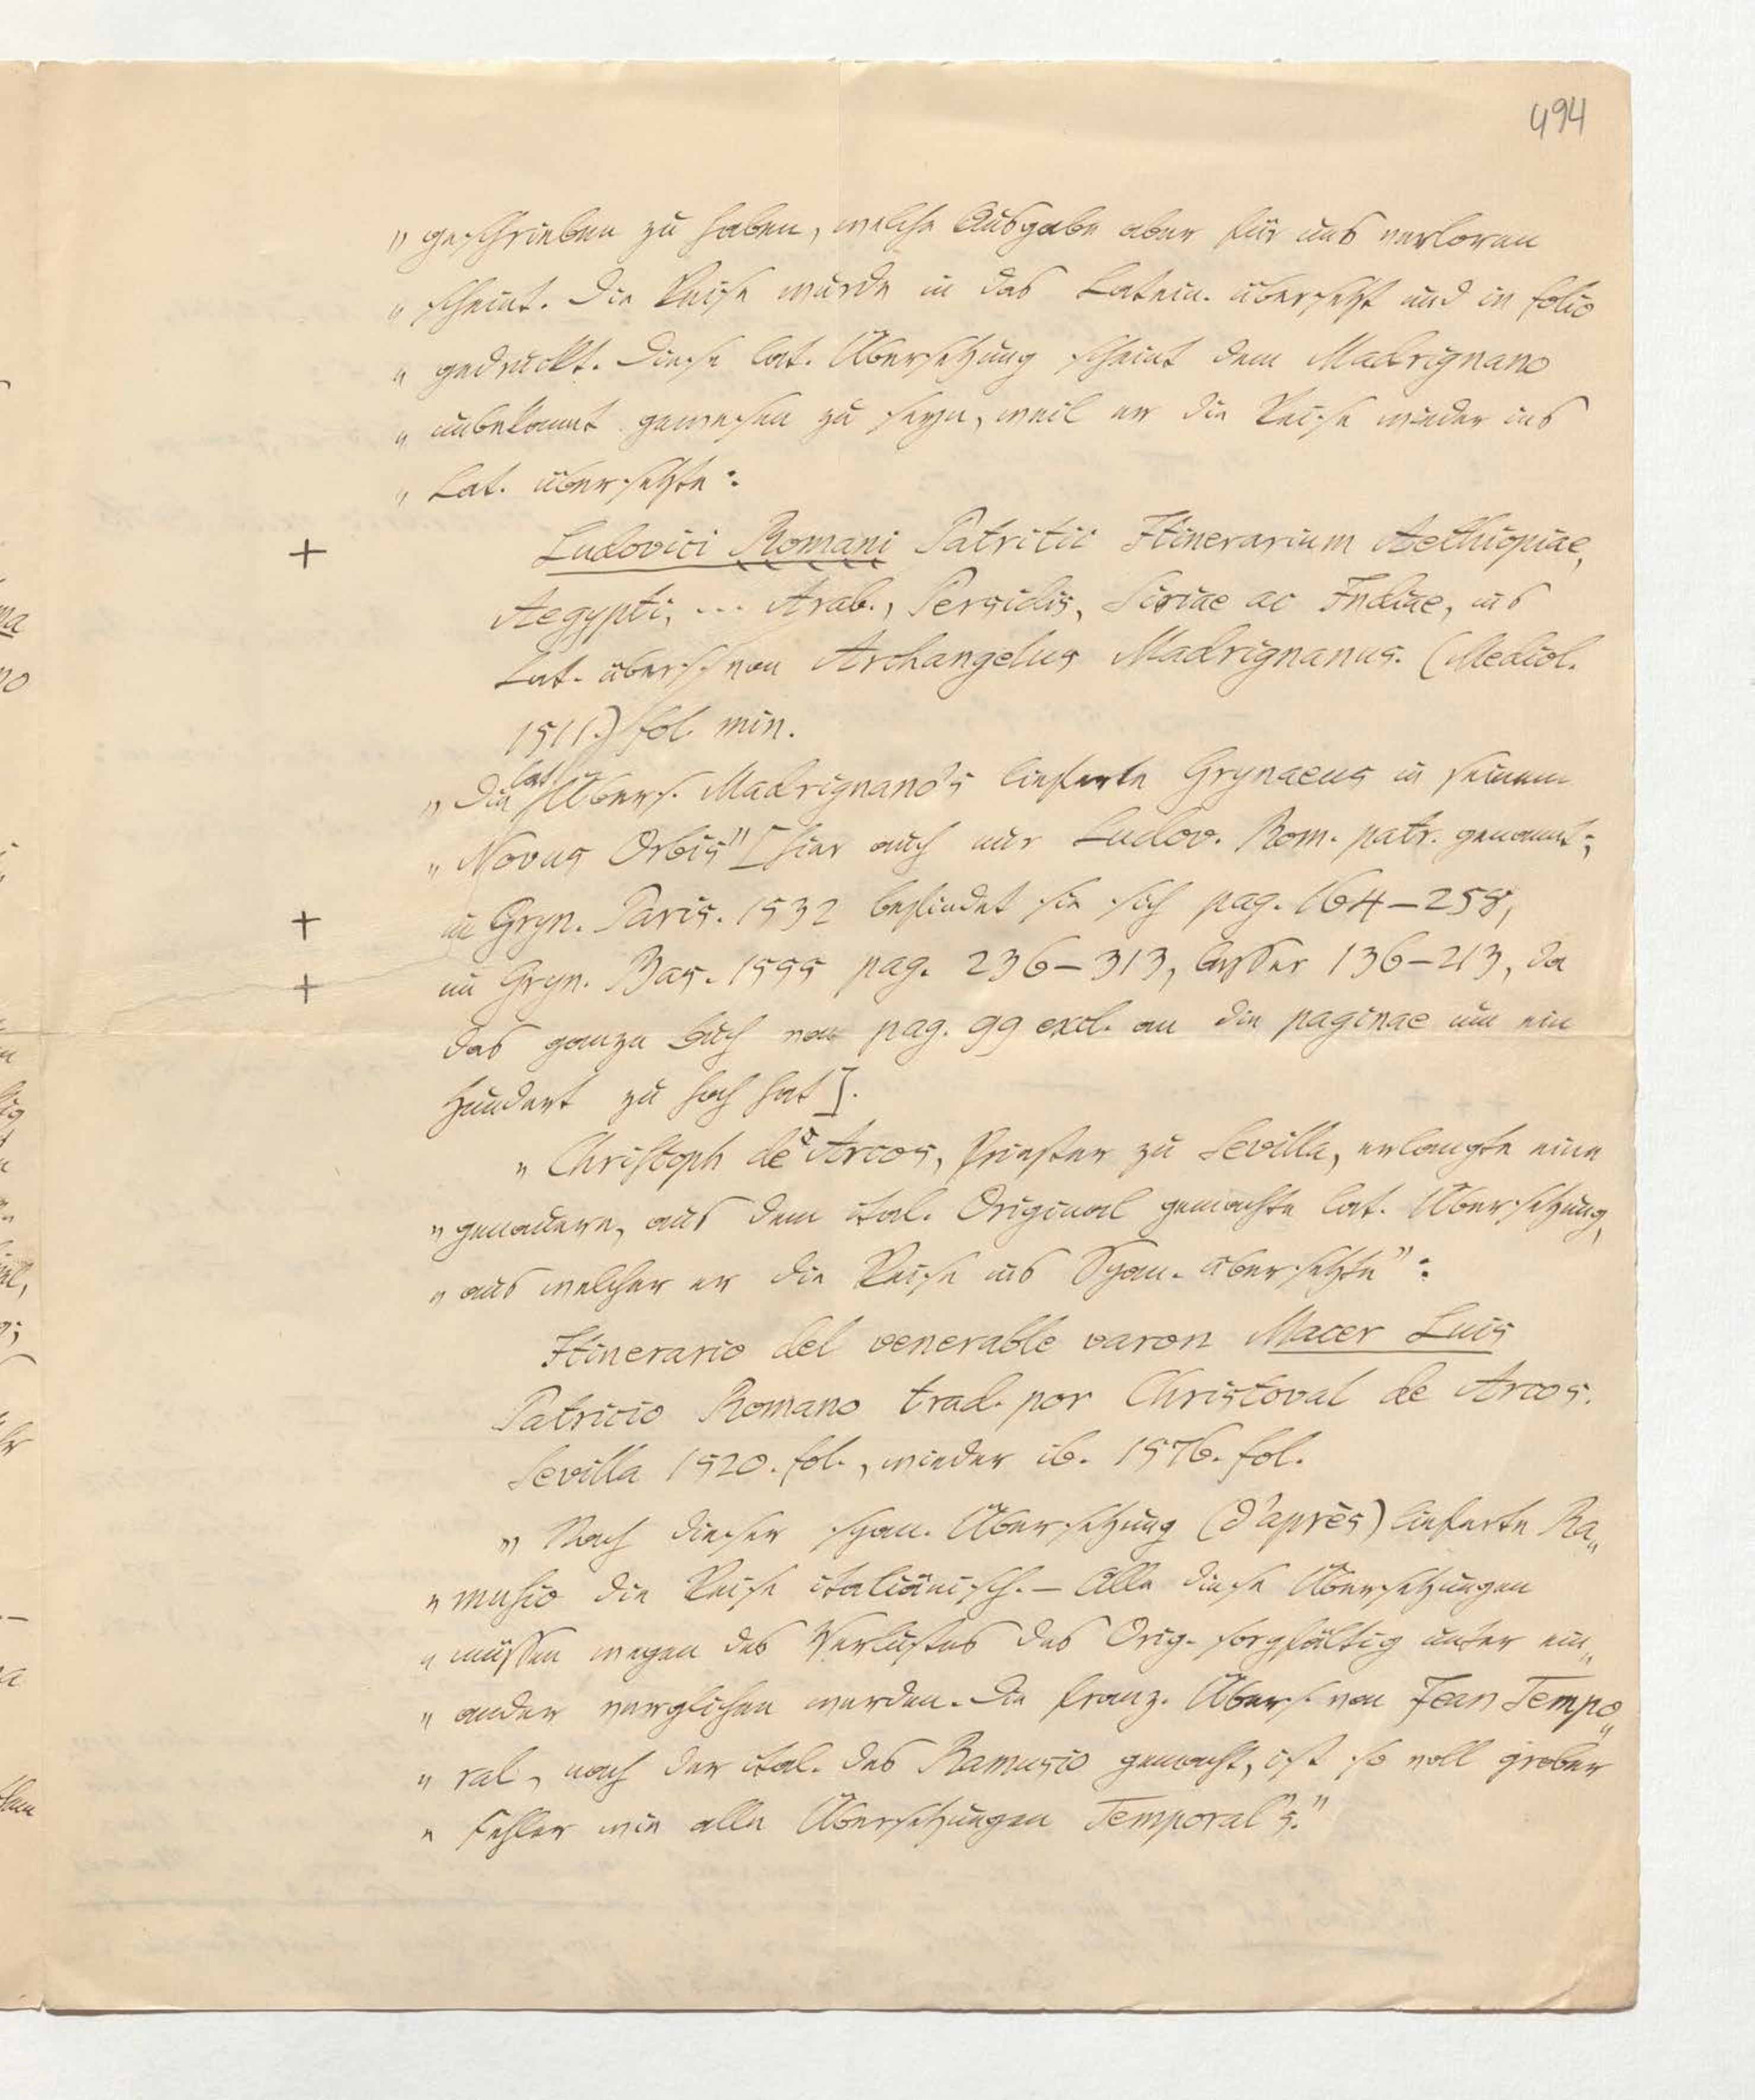 494
„ geschrieben zu haben, welche Ausgabe aber für uns verloren
„ scheint. Die Reise wurde in das Latein. übersetzt und in folio
„ gedruckt. Diese lat. Übersetzung scheint dem Madrignano
„ unbekannt gewesen zu seyn, weil er die Reise wieder ins
„ Lat. übersetzte:
+ Ludovici Romani Patritii Itinerarium Aethiopiae,
Aegypti, ... Arab., Persidis, Siriae ac Indiae, ins
Lat. übers. von Archangelus Madrignanus. (Mediol.
1511.) fol. min.
„ Die lat. Übers. Madrignano's lieferte Grynaeus in seinem
„ Novus Orbis" [hier auch nur Ludov. Rom. patr. genannt;
+ in Gryn. Paris. 1532 befindet sie sich pag. 164–258,
+ in Gryn. Bas. 1555 pag. 236–313, besser 136–213, da
das ganze Buch von pag. 99 excl. an die paginae um ein
Hundert zu hoch hat].
„ Christoph de Arcos, Priester zu Sevilla, erlangte eine
„ genauere, aus dem ital. Original gemachte lat. Übersetzung,
„ aus welcher er die Reise ins Span. übersetzte":
Itinerario del venerable varon Macer Luis
Patricio Romano trad. por Christoval de Arcos.
Sevilla 1520. fol., wieder ib. 1576. fol.
„ Nach dieser span. Übersetzung (d'après) lieferte Ra„
„ musio die Reise italiänisch. – Alle diese Übersetzungen
„ müssen wegen des Verlustes des Orig. sorgfältig unter ein„
„ ander verglichen werden. Die franz. Übers. von Jean Tempo„
„ ral, nach der ital. des Ramusio gemacht, ist so voll grober
„ Fehler wie alle Übersetzungen Temporal's."